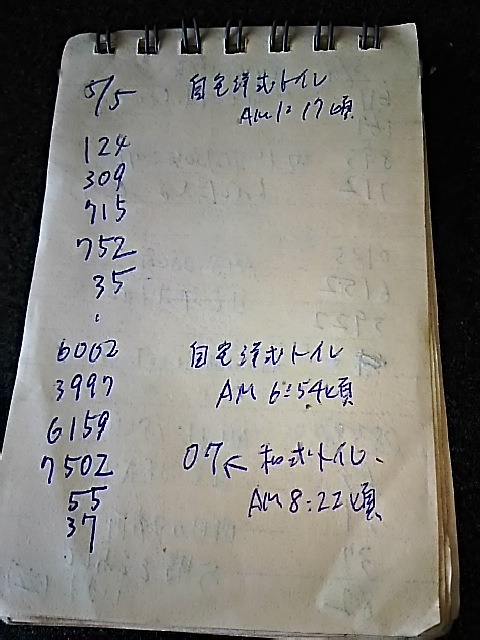 5/5 自宅洋式トイレ
AM1:17頃
124
309
715
752
35
:
6062 自宅洋式トイレ
3997 AM 6:54頃
6159
7502 07← 和式トイレ、
55 AM8:22頃
37